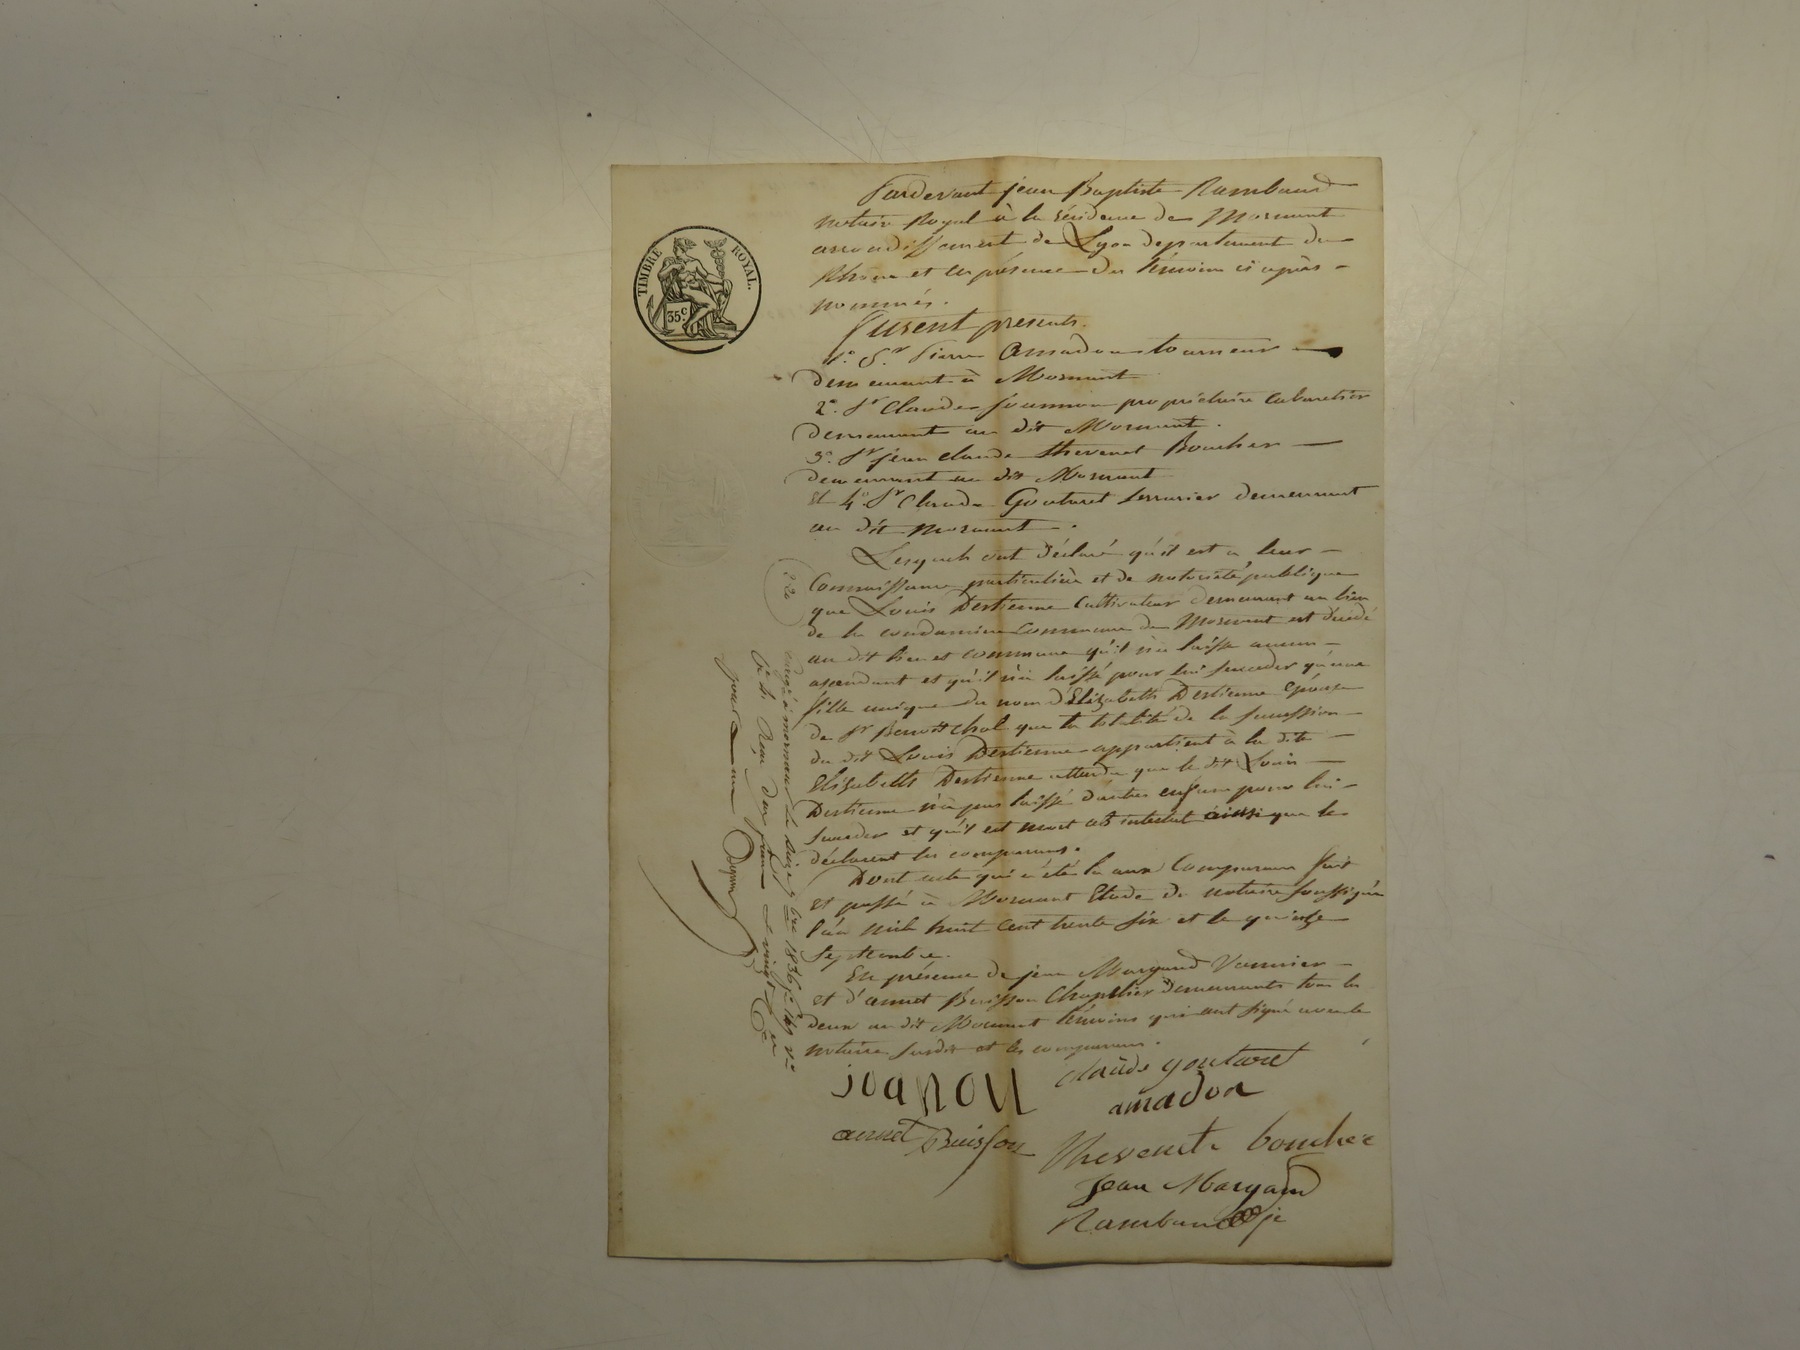 TIMBRE ROYAL.
35c.
Pardevant jean Baptiste Rambaud
notaire Royal à la résidence de Mornant
arrondissement de Lyon departement du
Rhône et en présence des témoins ci après
nommés.
Furent presents.
1º. Sr. Pierre Amadon tourneur
demeurant à Mornant
2º. Sr Claude Joannon propriétaire Cabaretier
demeurant au dit Mornant.
3º. Sr jean claude thevenet Boucher
demeurant au dit Mornant
Et 4º. Sr Claude Goutaret serrurier demeurant
au dit Mornant.
Lesquels ont déclaré qu'il est à leur
Connaissance particulière et de notoriété publique
que Louis Destienne Cultivateur demeurant au lieu
de la condamine commune de Mornant est décédé
au dit lieu et commune qu'il n'a laissé aucun
ascendant et qu'il n'a laissé pour lui succeder qu'une
fille unique du nom d'Elizabeth Destienne Epouse
de Sr Benoît Chol que la totalité de la succession
du dit Louis Destienne appartient à la dite
Elizabeth Destienne attendu que le dit Louis
Destienne n'a pas laissé d'autres enfans pour lui
succeder et qu'il est mort ab intestat ainsi que le
déclarent les comparans.
Dont acte qui a été lu aux Comparans fait
et passé à Mornant Etude du notaire soussigné
l'an mil huit cent trente six et le quinze
septembre.
En présence de jean Margand Vannier
et d'annet Buisson Chapelier demeurants tous les
deux au dit Mornant témoins qui ont signé avec le
notaire susdit et les comparans.
joanon
claude goutaret
amadon
annet Buisson
thevenet boucher
Jean Margand
Rambaud
220
enregé à mornant le seize 7bre 1836
Reçu deux francs vingt cen